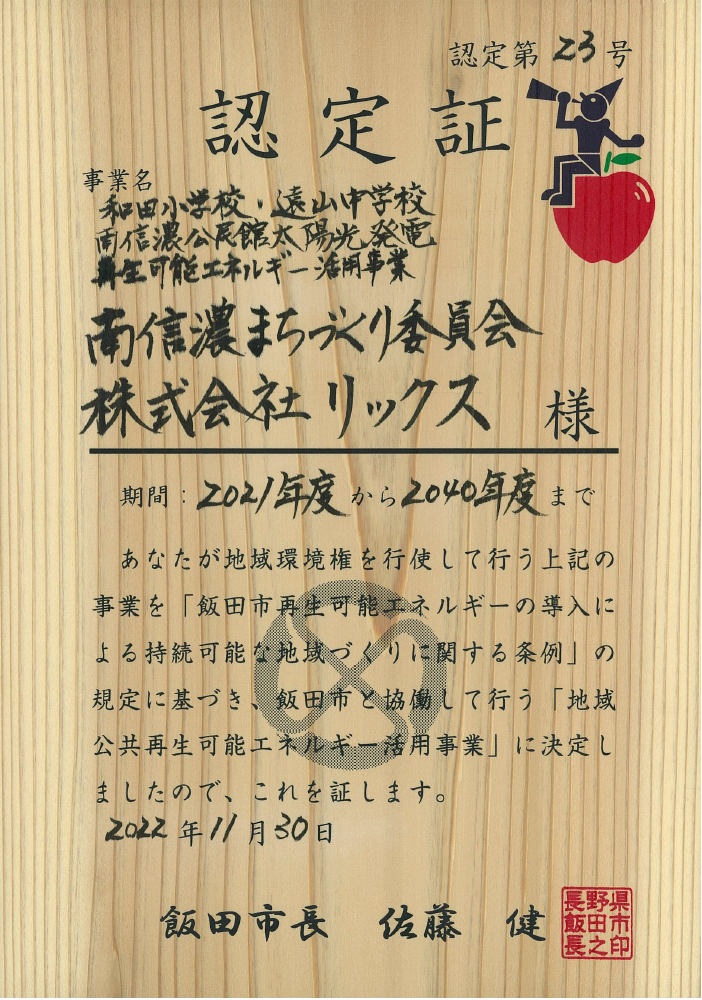 認定第23号
認定証
事業名
和田小学校・遠山中学校
南信濃公民館太陽光発電
再生可能エネルギー活用事業
南信濃まちづくり委員会
株式会社リックス 様
期間：2021年度から2040年度まで
あなたが地域環境権を行使して行う上記の
事業を「飯田市再生可能エネルギーの導入に
よる持続可能な地域づくりに関する条例」の
規定に基づき、飯田市と協働して行う「地域
公共再生可能エネルギー活用事業」に決定し
ましたので、これを証します。
2022年11月30日
飯田市長 佐藤 健
長野県
飯田市
長之印